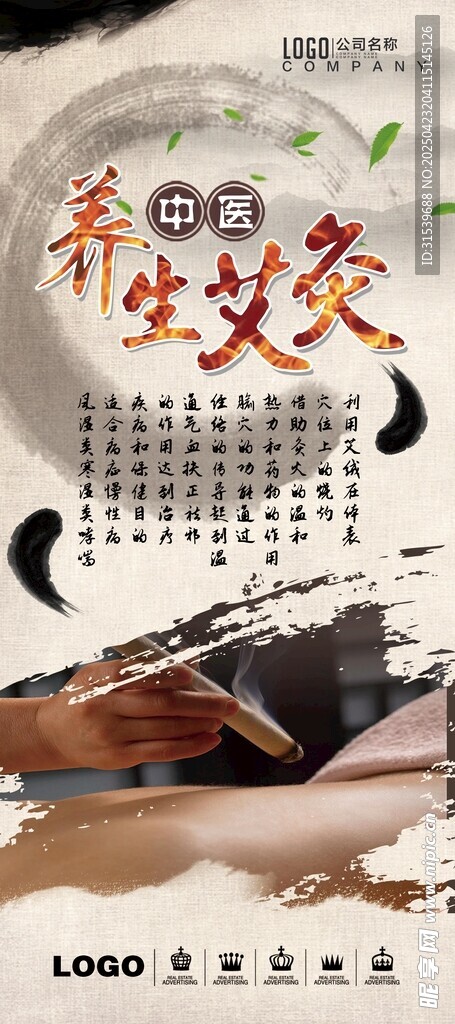 LOGO 公司名称
COMPANY NAME COMPANY NAME
COMPANY
中医
养生艾灸
利用艾绒在体表
穴位上的烧灼
借助灸火的温和
热力和药物的作用
腧穴的功能通过
经络的传导起到温
通气血扶正祛邪
的作用达到治疗
疾病和保健目的
适合病症慢性病
风湿类寒湿类哮喘
LOGO
REAL ESTATE ADVERTISING
REAL ESTATE ADVERTISING
REAL ESTATE ADVERTISING
REAL ESTATE ADVERTISING
REAL ESTATE ADVERTISING
ID:31539688 NO:20250423204115145126
昵享网 www.nipic.cn